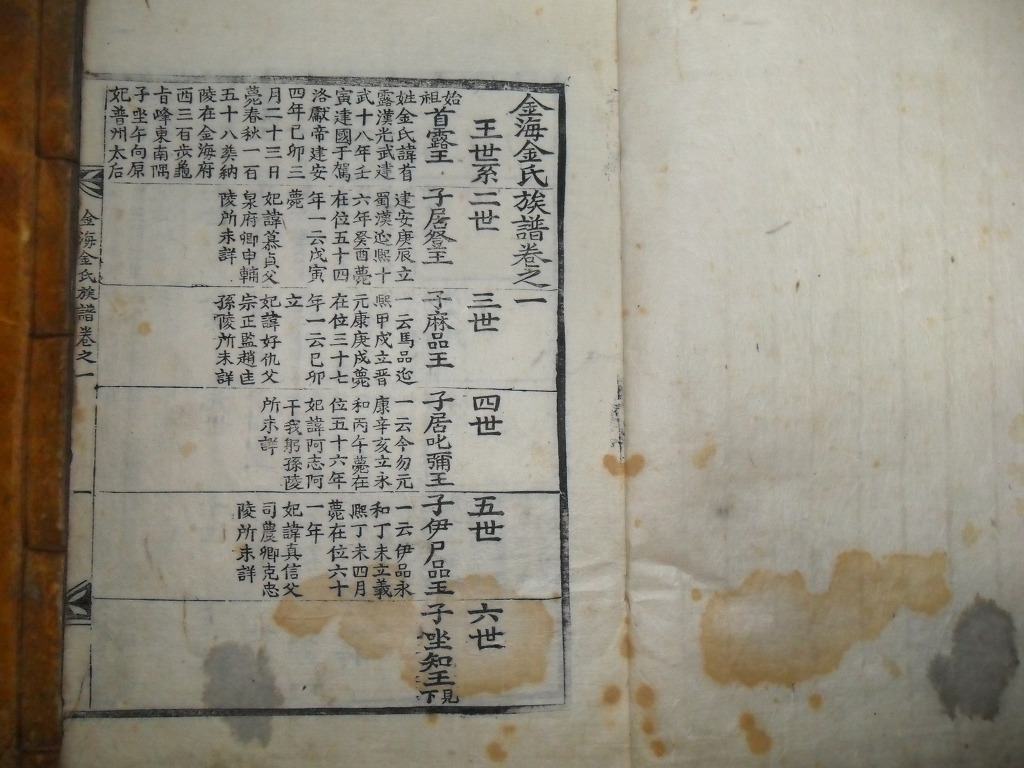 金海金氏族譜卷之一
王世系
始祖首露王
姓金氏諱首
露漢光武建
武十八年壬
寅建國于駕
洛獻帝建安
四年己卯三
月二十三日
薨春秋一百
五十八葬納
陵在金海府
西三百步龜
旨峰東南隅
子坐午向原
妃普州太后
二世
子居登王
建安庚辰立
蜀漢延熙十
六年癸酉薨
在位五十四
年一云戊寅
薨
妃諱慕貞父
泉府卿申輔
陵所未詳
三世
子麻品王
一云馬品延
熙甲戌立晋
元康庚戌薨
在位三十七
年一云己卯
立
妃諱好仇父
宗正監趙匡
孫陵所未詳
四世
子居叱彌王
一云今勿元
康辛亥立永
和丙午薨在
位五十六年
妃諱阿志阿
干我躬孫陵
所未詳
五世
子伊尸品王
一云伊品永
和丁未立義
熙丁未四月
薨在位六十
一年
妃諱真信父
司農卿克忠
陵所未詳
六世
子坐知王見下
金海金氏族譜卷之一
一